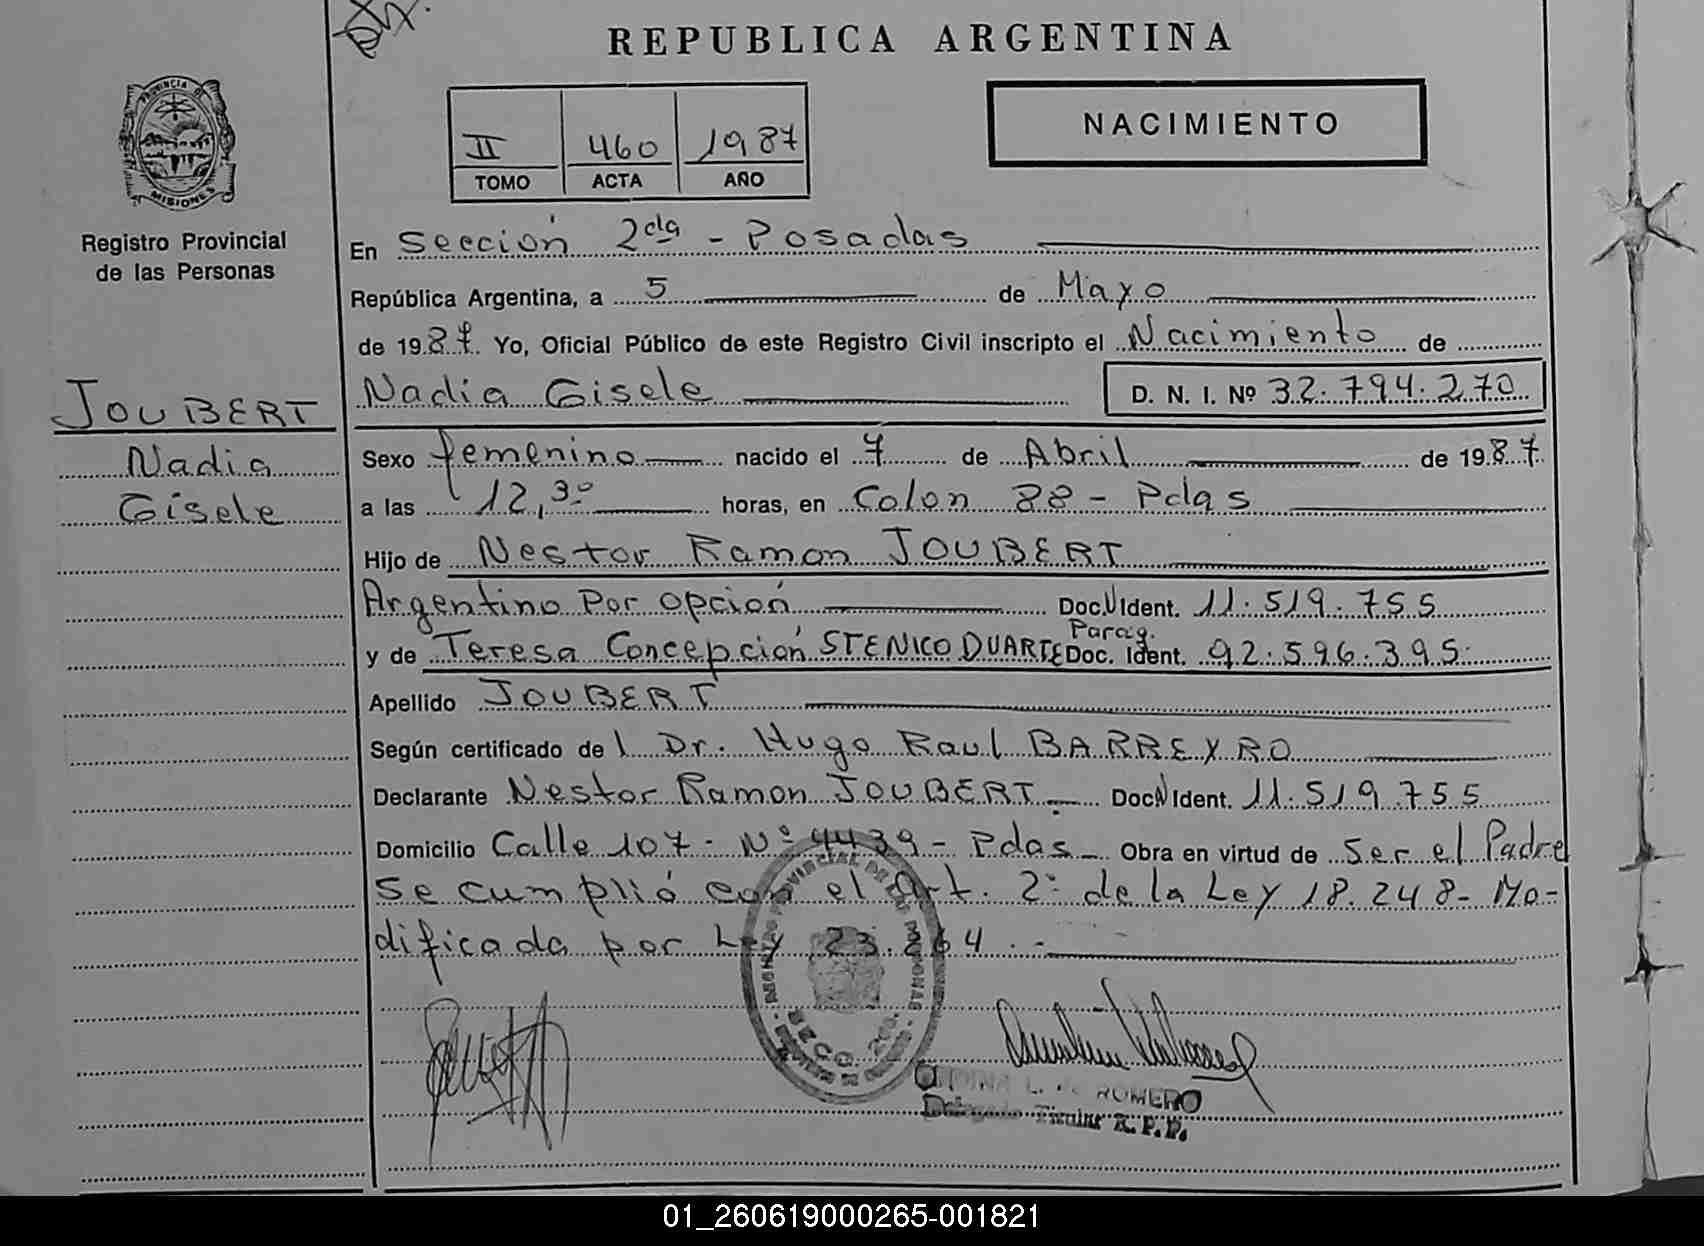 REPUBLICA ARGENTINA
PROVINCIA DE
MISIONES
Registro Provincial
de las Personas
II 460 1987
TOMO ACTA AÑO
NACIMIENTO
En Sección 2da - Posadas
República Argentina, a 5 de Mayo
de 1987. Yo, Oficial Público de este Registro Civil inscripto el Nacimiento de
Nadia Gisele D. N. I. Nº 32.794.270
JOUBERT
Nadia
Gisele
Sexo femenino nacido el 7 de Abril de 1987.
a las 12,30 horas, en Colon 88 - Pdas
Hijo de Nestor Ramon JOUBERT
Argentino Por opción Doc. N Ident. 11.519.755
y de Teresa Concepción STENICO DUARTE Parag. Doc. Ident. 92.596.395
Apellido JOUBERT
Según certificado de l Dr. Hugo Raul BARREYRO
Declarante Nestor Ramon JOUBERT Doc. N Ident. 11.519.755
Domicilio Calle 107 - Nº 4439 - Pdas Obra en virtud de Ser el Padre
Se cumplió con el Art. 2º de la Ley 18.248 - Mo-
dificada por Ley 23.264.-
REGISTRO PROVINCIAL DE LAS PERSONAS
SECC. 2da.
ROMERO
Delegado Titular R. P. P.
01_260619000265-001821